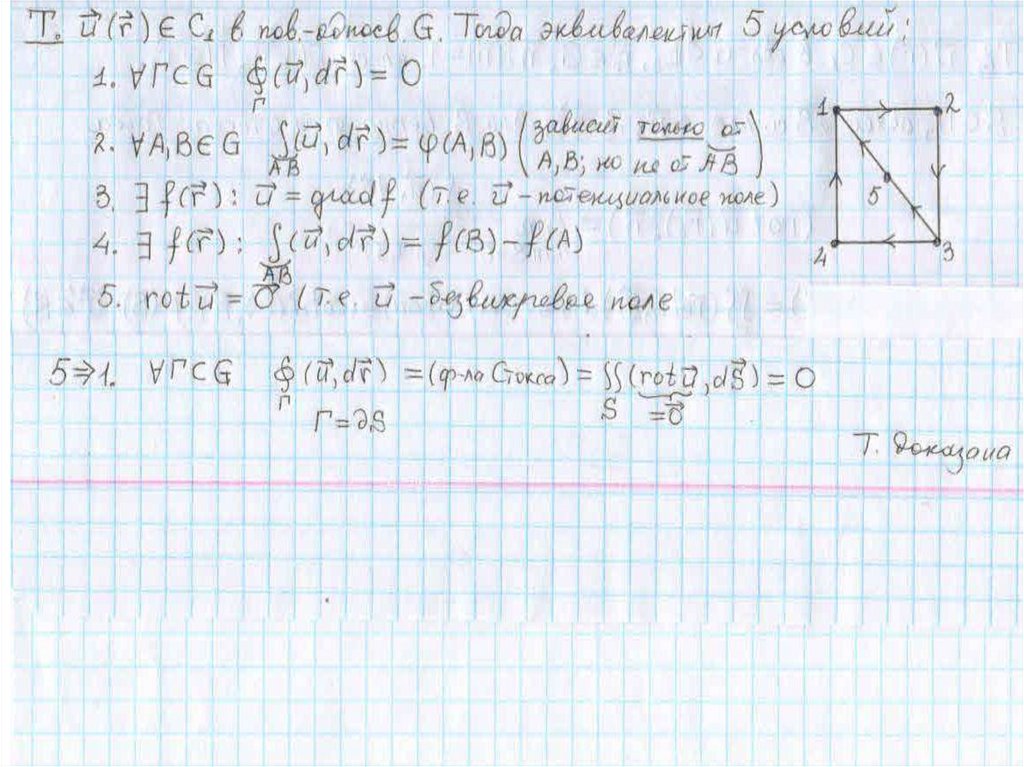 Т. u⃗(r⃗) ∈ C₁ в пов.-односв G. Тогда эквивалентны 5 условий:
1. ∀Γ⊂G ∮_Γ (u⃗, dr⃗) = 0
2. ∀A,B∈G ∫_{A͡B} (u⃗, dr⃗) = φ(A,B) (зависит только от
A,B; но не от A͡B)
3. ∃ f(r⃗) : u⃗ = grad f (т.е. u⃗ - потенциальное поле)
4. ∃ f(r⃗) : ∫_{A͡B} (u⃗, dr⃗) = f(B) - f(A)
5. rot u⃗ = 0⃗ (т.е. u⃗ - безвихревое поле
1 2
5
4 3
5⇒1. ∀Γ⊂G ∮_Γ (u⃗, dr⃗) = (ф-ла Стокса) = ∬_S (rot u⃗, dS⃗) = 0
Γ = ∂S =0⃗
Т. доказана